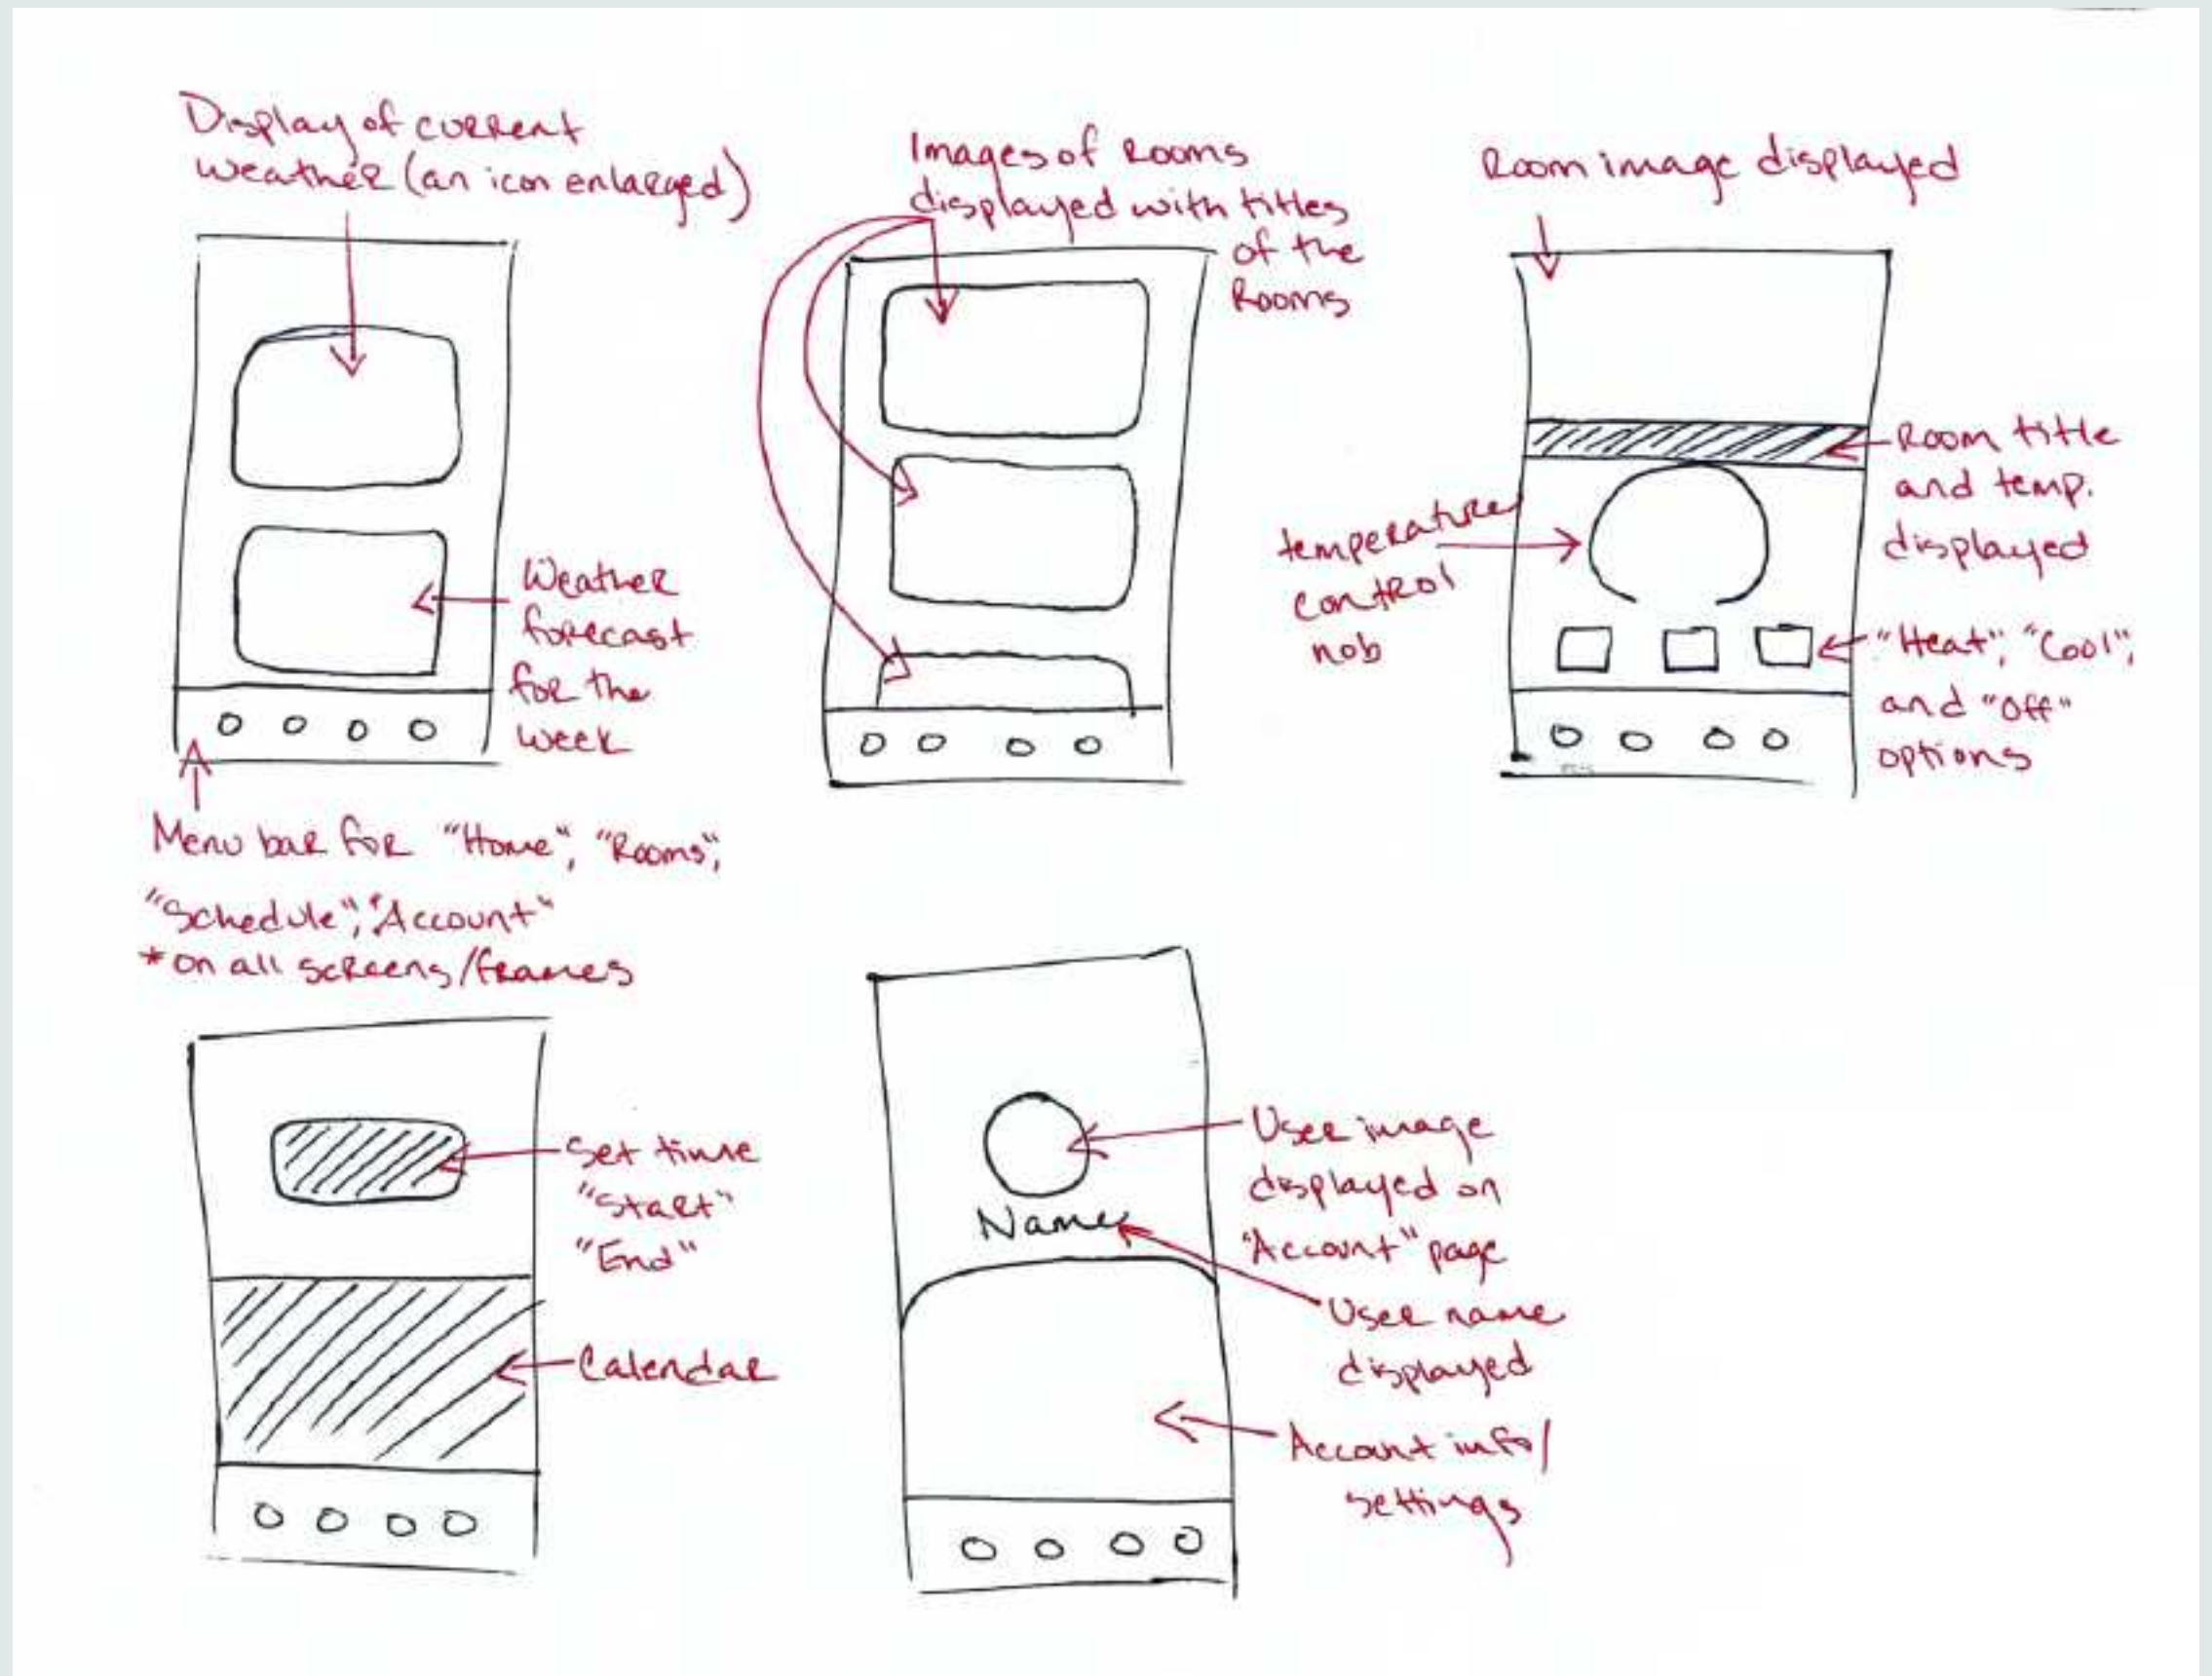 Display of current
weather (an icon enlarged)
Weather
forecast
for the
week
Menu bar for "Home", "Rooms",
"Schedule", "Account"
*on all screens/frames
Images of Rooms
displayed with titles
of the
Rooms
Room image displayed
Room title
and temp.
displayed
temperature
control
nob
"Heat", "Cool",
and "Off"
options
Set time
"Start"
"End"
Calendar
Name
User image
displayed on
"Account" page
User name
displayed
Account info/
settings